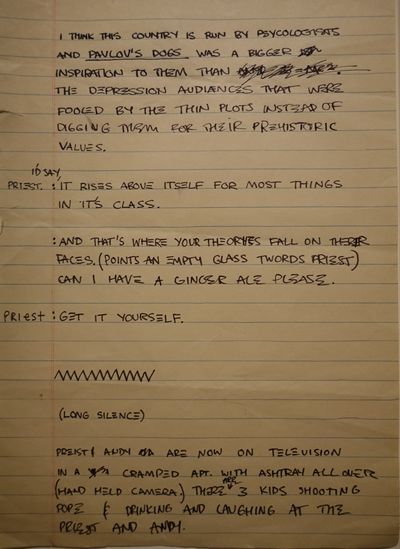 I THINK THIS COUNTRY IS RUN BY PSYCOLOGISTS
AND PAVLOV'S DOGS WAS A BIGGER
INSPIRATION TO THEM THAN
THE DEPRESSION AUDIANCES THAT WERE
FOOLED BY THE THIN PLOTS INSTEAD OF
DIGGING THEM FOR THEIR PREHISTORIC
VALUES.
I'D SAY,
PRIEST. : IT RISES ABOVE ITSELF FOR MOST THINGS
IN IT'S CLASS.
: AND THAT'S WHERE YOUR THEORYES FALL ON THEIR
FACES. (POINTS AN EMPTY GLASS TWORDS PRIEST)
CAN I HAVE A GINGER ALE PLEASE.
PRIEST : GET IT YOURSELF.
(LONG SILENCE)
PREIST & ANDY ARE NOW ON TELEVISION
IN A CRAMPED APT. WITH ASHTRAY ALL OVER
(HAND HELD CAMERA) THERE ARE 3 KIDS SHOOTING
POPE & DRINKING AND LAUGHING AT THE
PRIEST AND ANDY.